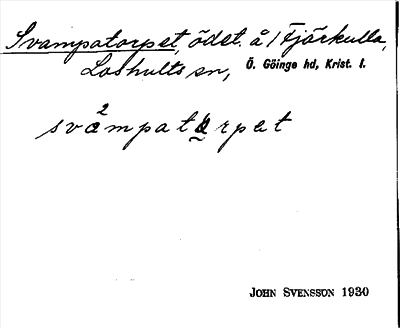 Svampatorpet, ödet. å 1 Fjärkulla,
Loshults sn, Ö. Göinge hd, Krist. l.
2
svampat rpet
JOHN SVENSSON 1930